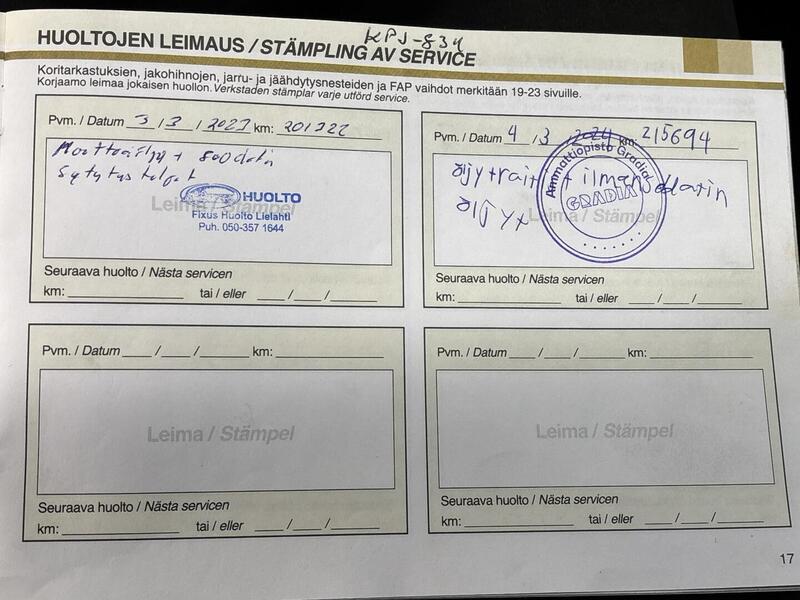 KPJ-834
HUOLTOJEN LEIMAUS / STÄMPLING AV SERVICE
Koritarkastuksien, jakohihnojen, jarru- ja jäähdytysnesteiden ja FAP vaihdot merkitään 19-23 sivuille.
Korjaamo leimaa jokaisen huollon. Verkstaden stämplar varje utförd service.
Pvm. / Datum 3 / 3 / 2023 km: 201322
Moottoriöljy + suodatin
Sytytystulpat
Leima / Stämpel
HUOLTO
Fixus Huolto Lielahti
Puh. 050-357 1644
Seuraava huolto / Nästa servicen
km: tai / eller / /
Pvm. / Datum 4 / 3 / 2024 km: 215694
ilmansuodatin
öljyt
Leima / Stämpel
Ammattiopisto Gradia
GRADIA
Seuraava huolto / Nästa servicen
km: tai / eller / /
Pvm. / Datum / / km:
Leima / Stämpel
Seuraava huolto / Nästa servicen
km: tai / eller / /
Pvm. / Datum / / km:
Leima / Stämpel
Seuraava huolto / Nästa servicen
km: tai / eller / /
17